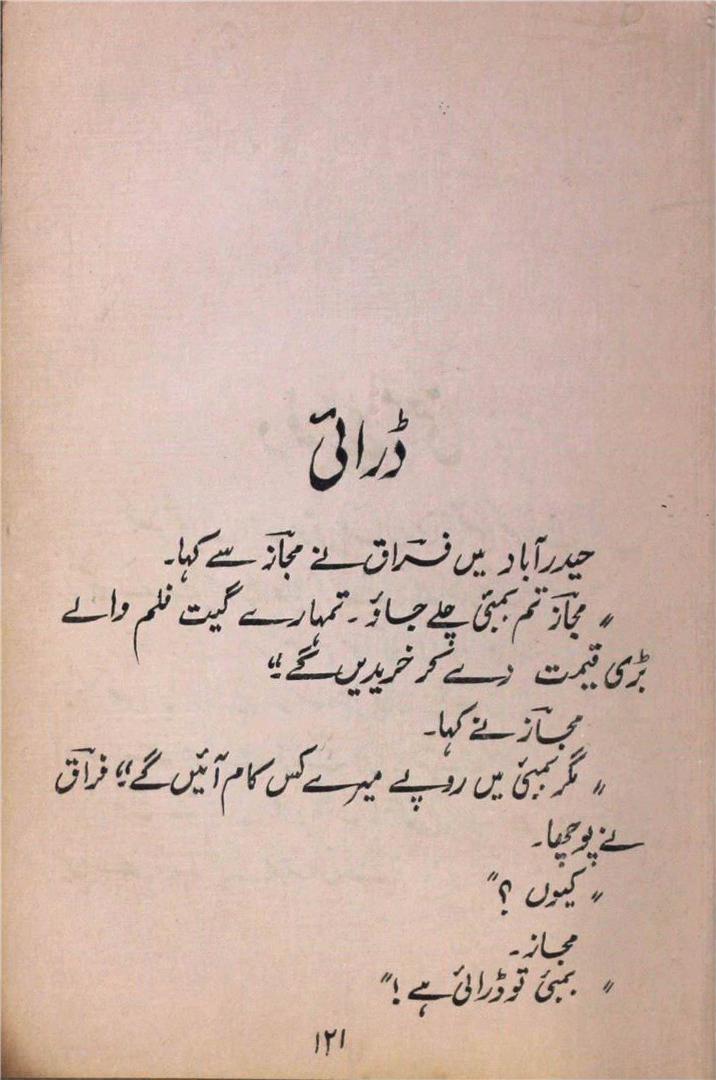 ڈرائی
حیدرآباد میں فراقؔ نے مجازؔ سے کہا۔
"مجازؔ تم بمبئی چلے جاؤ۔ تمہارے گیت فلم والے
بڑی قیمت دے کر خریدیں گے۔"
مجازؔ نے کہا۔
"مگر بمبئی میں روپے میرے کس کام آئیں گے۔" فراقؔ
نے پوچھا۔
"کیوں ؟"
مجاز۔
"بمبئی تو ڈرائی ہے !"
۱۲۱